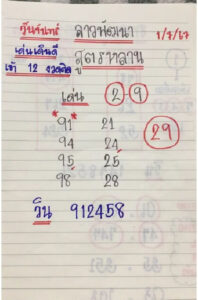 วันจันทร์ ลาวพัฒนา 1/7/67
เด่นเดินดี สูตรหลาน
เข้า 12 งวดติด
เด่น 2-9
91 21
94 24 29
95 25
98 28
วิน 912458